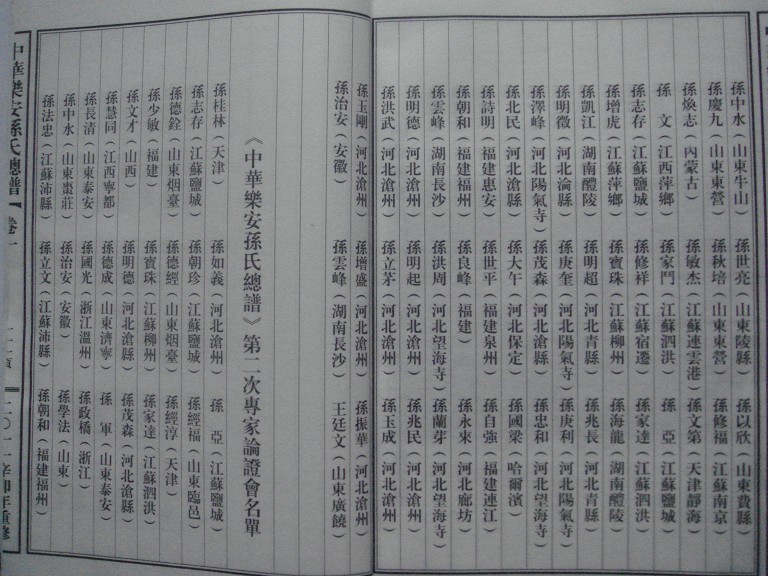 孫中水（山東牛山） 孫世亮（山東陵縣） 孫以欣（山東費縣）
孫慶九（山東東營） 孫秋培（山東東營） 孫修福（江蘇南京）
孫煥志（內蒙古） 孫敏杰（江蘇連雲港） 孫文第（天津靜海）
孫文（江西萍鄉） 孫家鬥（江蘇泗洪） 孫亞（江蘇鹽城）
孫志存（江蘇鹽城） 孫修祥（江蘇宿遷） 孫家達（江蘇泗洪）
孫增虎（江蘇萍鄉） 孫寶珠（江蘇柳州） 孫海龍（湖南醴陵）
孫凱江（湖南醴陵） 孫明超（河北青縣） 孫兆長（河北青縣）
孫明微（河北淪縣） 孫庚奎（河北陽氣寺） 孫庚利（河北陽氣寺）
孫澤峰（河北陽氣寺） 孫茂森（河北滄縣） 孫忠和（河北望海寺）
孫北民（河北滄縣） 孫大午（河北保定） 孫國梁（哈爾濱）
孫詩明（福建惠安） 孫世平（福建泉州） 孫自強（福建連江）
孫朝和（福建福州） 孫良峰（福建） 孫永來（河北廊坊）
孫雲峰（湖南長沙） 孫洪周（河北望海寺） 孫蘭芽（河北望海寺）
孫明德（河北滄州） 孫明起（河北滄州） 孫兆民（河北滄州）
孫洪武（河北滄州） 孫立茅（河北滄州） 孫玉成（河北滄州）
孫玉剛（河北滄州） 孫增盛（河北滄州） 孫振華（河北滄州）
孫治安（安徽） 孫雲峰（湖南長沙） 王廷文（山東廣饒）
《中華樂安孫氏總譜》第二次專家論證會名單
孫桂林（天津） 孫如義（河北滄州） 孫亞（江蘇鹽城）
孫志存（江蘇鹽城） 孫朝珍（江蘇鹽城） 孫經福（山東臨邑）
孫德銓（山東烟臺） 孫德經（山東烟臺） 孫經淳（天津）
孫少敏（福建） 孫寶珠（江蘇柳州） 孫家達（江蘇泗洪）
孫文才（山西） 孫明德（河北滄縣） 孫茂森（河北滄縣）
孫慧同（江西寧都） 孫德成（山東濟寧） 孫軍（山東泰安）
孫長清（山東泰安） 孫國光（浙江溫州） 孫政橋（浙江）
孫中水（山東棗莊） 孫治安（安徽） 孫學法（山東）
孫法忠（江蘇沛縣） 孫立文（江蘇沛縣） 孫朝和（福建福州）
中華樂安孫氏總譜 卷一
二〇一一辛卯年重修